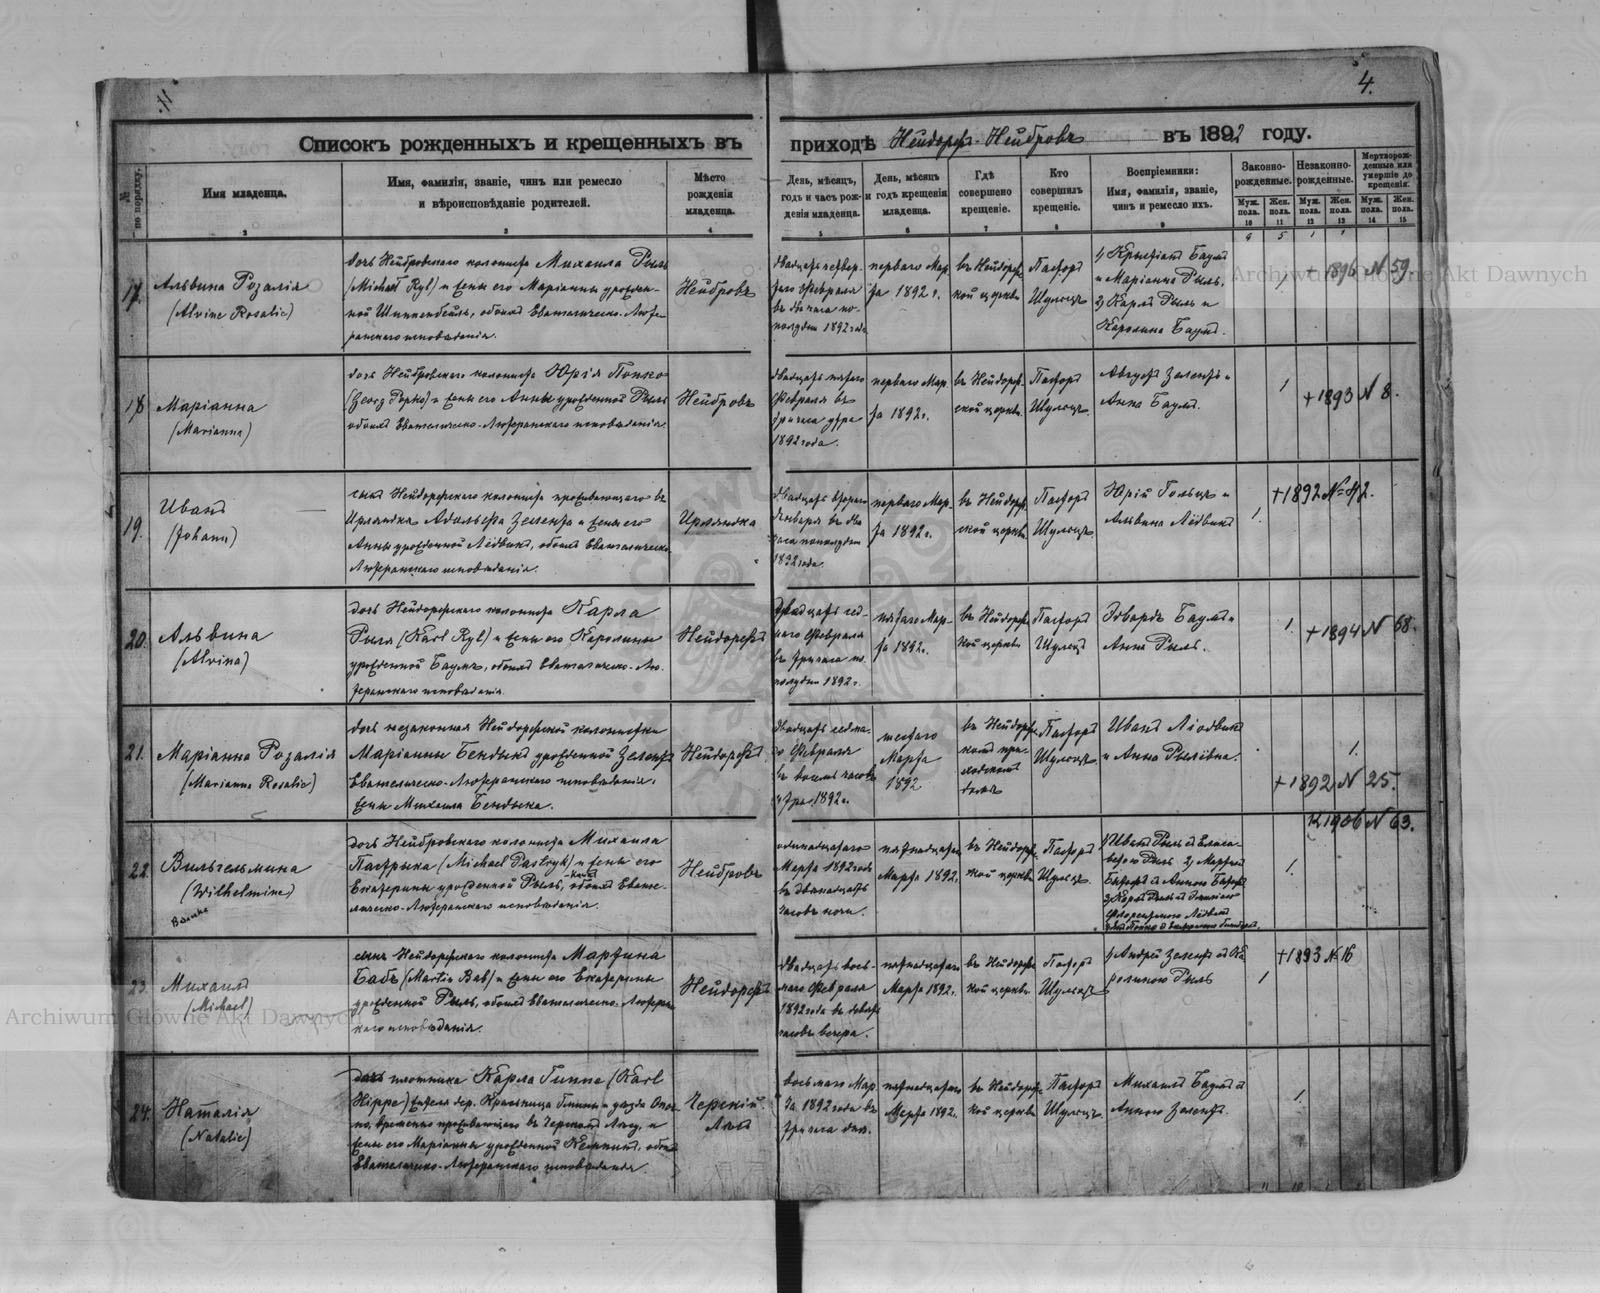 11
4.
Списокъ рожденныхъ и крещенныхъ въ приходѣ Нейдорфъ-Нейбровъ въ 1892 году.
№ по порядку.
Имя младенца.
Имя, фамилія, званіе, чинъ или ремесло
и вѣроисповѣданіе родителей.
Мѣсто
рожденія
младенца.
День, мѣсяцъ,
годъ и часъ рож-
денія младенца.
День, мѣсяцъ
и годъ крещенія
младенца.
Гдѣ
совершено
крещеніе.
Кто
совершилъ
крещеніе.
Воспріемники:
Имя, фамилія, званіе,
чинъ и ремесло ихъ.
Законно-
рожденные.
Незаконно-
рожденные.
Мертворож-
денные или
умершіе до
крещенія.
Муж. пола.
Жен. пола.
Муж. пола.
Жен. пола.
Муж. пола.
Жен. пола.
2 3 4 5 6 7 8 9 10 11 12 13 14 15
17.
Альвина Розалія
(Alvine Rosalie)
дочь Нейбровскаго колониста Михаила Рыль
(Michael Ryl) и жены его Маріанны урожден-
ной, обоихъ Евангелическо-Люте-
ранскаго исповѣданія.
Нейбровъ
двадцать четвер-
таго Февраля
въ два часа по-
полудни 1892 года
перваго Мар-
та 1892 г.
въ Нейдорфс-
кой церкви
Пасторъ
Шульцъ
1) Крыстіанъ Баумъ
и Маріанна Рыль.
2) Карлъ Рыль и
Каролина Баумъ.
1
+ 1896 N 59.
18
Маріанна
(Marianna)
дочь Нейбровскаго колониста Юрія Попко
(Georg Popko) и жены его Анны урожденной Рыль
обоихъ Евангелическо-Лютеранскаго исповѣданія.
Нейбровъ
двадцать пятаго
Февраля въ
три часа утра
1892 года.
перваго Мар-
та 1892 г.
въ Нейдорф-
ской церкви
Пасторъ
Шульцъ
Августъ Зелентъ и
Анна Баумъ.
1
+ 1893 N 8.
19.
Иванъ
(Johann)
сынъ Нейдорфскаго колониста проживающаго въ
Ирляндка Адольфа Зелента и жены его
Анны урожденной Людвигъ, обоихъ Евангелическо-
Лютеранскаго исповѣданія.
Ирляндка
двадцать втораго
Января въ два
часа пополудни
1892 года.
перваго Мар-
та 1892 г.
въ Нейдорф-
ской церкви
Пасторъ
Шульцъ
Юрій Гольцъ и
Альвина Людвигъ
1.
+ 1892 № 42.
20.
Альвина
(Alvina)
дочь Нейдорфскаго колониста Карла
Рыля (Karl Ryl) и жены его Каролины
урожденной Баумъ, обоихъ Евангелическо-Лю-
теранскаго исповѣданія
Нейдорфъ
двадцать седь-
маго Февраля
въ три часа по-
полудни 1892 г.
пятаго Мар-
та 1892 г.
въ Нейдорфс-
кой церкви
Пасторъ
Шульцъ
Эдвардъ Баумъ и
Анна Рыль.
1.
+ 1894 N 68.
21.
Маріанна Розалія
(Marianna Rosalie)
дочь незаконная Нейдорфской колонистки
Маріанны Бендыкъ урожденной Зелентъ
Евангелическо-Лютеранскаго исповѣданія.
жены Михаила Бендыка.
Нейдорфъ.
двадцать седма-
го Февраля
въ восемь часовъ
утра 1892 г.
шестаго
Марта
1892
въ Нейдорфс-
комъ при-
ходскомъ
домѣ
Пасторъ
Шульцъ
Иванъ Людвигъ
и Анна Рылевна.
1.
+ 1892 N 25.
22.
Вильгельмина
(Wilhelmine)
дочь Нейбровскаго колониста Михаила
Пастрыка (Michael Pastryk) и жены его
Екатерины урожденной Рыль, обоихъ Еванге-
лическо-Лютеранскаго исповѣданія.
Нейбровъ
одинадцатаго
Марта 1892 года
въ двѣнадцать
часовъ ночи.
пятнадцатаго
Марта 1892.
въ Нейдорфс-
кой церкви
Пасторъ
Шульцъ
1.
1906 N 63.
23.
Михаилъ
(Michael)
сынъ Нейдорфскаго колониста Мартина
Бабъ (Martin Bab) и жены его Екатерины
урожденной Рыль, обоихъ Евангелическо-Лютеранс-
каго исповѣданія.
Нейдорфъ
двадцать вось-
маго Февраля
1892 года въ девять
часовъ вечера.
пятнадцатаго
Марта 1892 г.
въ Нейдорфс-
кой церкви
Пасторъ
Шульцъ
1) Андрей Зелентъ съ Ка-
ролиною Рыль
1
+ 1893 N 16
24.
Наталія
(Natalie)
дочь плотника Карла Гиппе (Karl
Hippe) жителя дер.
но, временно проживающаго въ Черскомъ Лясу, и
жены его Маріанны урожденной, обоихъ
Евангелическо-Лютеранскаго исповѣданія.
Черскій
Лясъ
восьмаго Мар-
та 1892 года въ
три часа дня.
пятнадцатаго
Марта 1892.
въ Нейдорфс-
кой церкви
Пасторъ
Шульцъ
Михаилъ Баумъ съ
Анною Зелентъ.
1.
Archiwum Główne Akt Dawnych
Archiwum Główne Akt Dawnych